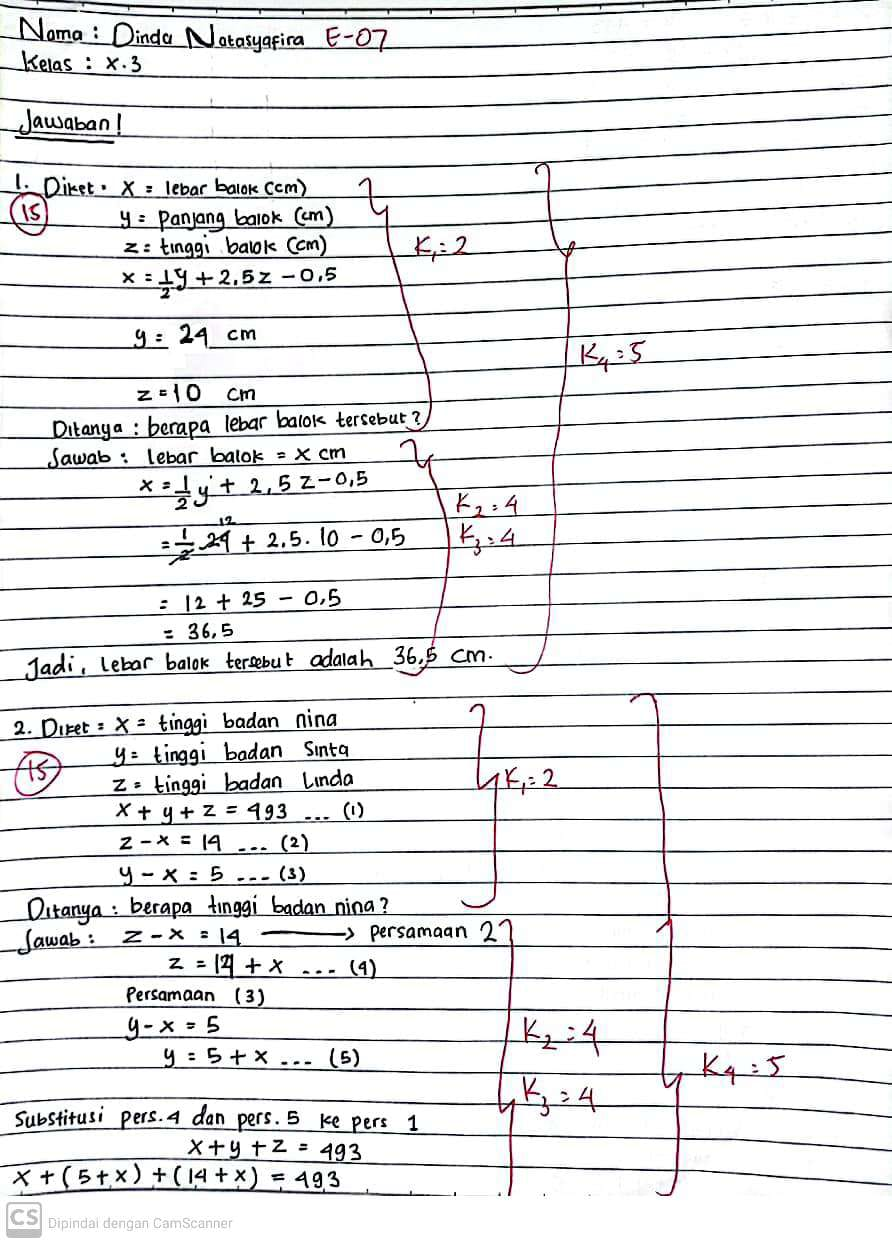 Nama : Dinda Natasyafira E-07
Kelas : X.3
Jawaban !
1. Diket : x = lebar balok (cm)
15
y = panjang balok (cm)
z = tinggi balok (cm)
K₁ = 2
x = 1/2 y + 2,5z - 0,5
y = 24 cm
K₄ = 5
z = 10 cm
Ditanya : berapa lebar balok tersebut ?
Jawab : lebar balok = x cm
x = 1/2 y + 2,5 z - 0,5
K₂ = 4
12
= 1/2 24 + 2,5. 10 - 0,5
K₃ = 4
= 12 + 25 - 0,5
= 36,5
Jadi, lebar balok tersebut adalah 36,5 cm.
2. Diket = x = tinggi badan nina
15
y = tinggi badan Sinta
z = tinggi badan Linda
K₁ = 2
x + y + z = 493 ... (1)
z - x = 14 ... (2)
y - x = 5 ... (3)
Ditanya : berapa tinggi badan nina ?
Jawab : z - x = 14 → persamaan 2
z = 14 + x ... (4)
Persamaan (3)
y - x = 5
K₂ = 4
y = 5 + x ... (5)
K₄ = 5
K₃ = 4
Substitusi pers. 4 dan pers. 5 ke pers 1
x + y + z = 493
x + (5 + x) + (14 + x) = 493
CS Dipindai dengan CamScanner